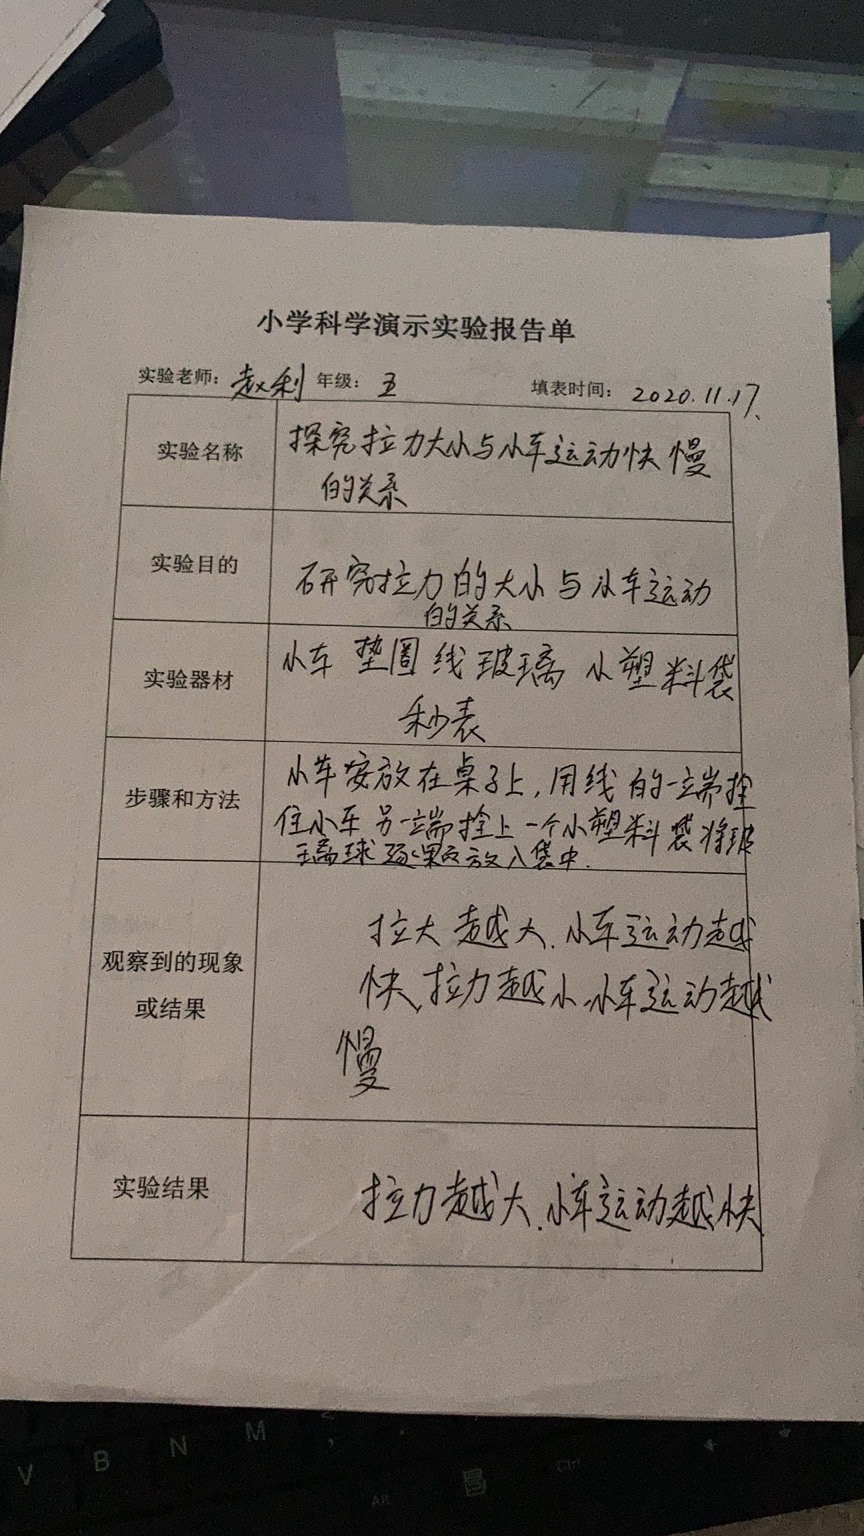 小学科学演示实验报告单
实验老师：赵利 年级：五 填表时间：2020.11.17.
实验名称
探究拉力大小与小车运动快慢
的关系
实验目的
研究拉力的大小与小车运动
的关系
实验器材
小车 垫圈 线 玻璃 小塑料袋
秒表
步骤和方法
小车安放在桌子上，用线的一端拴
住小车另一端拴上一个小塑料袋将玻
璃球逐颗放入袋中.
观察到的现象
或结果
拉大越大、小车运动越
快、拉力越小、小车运动越
慢
实验结果
拉力越大、小车运动越快
V B N M < ,
Alt Ctrl